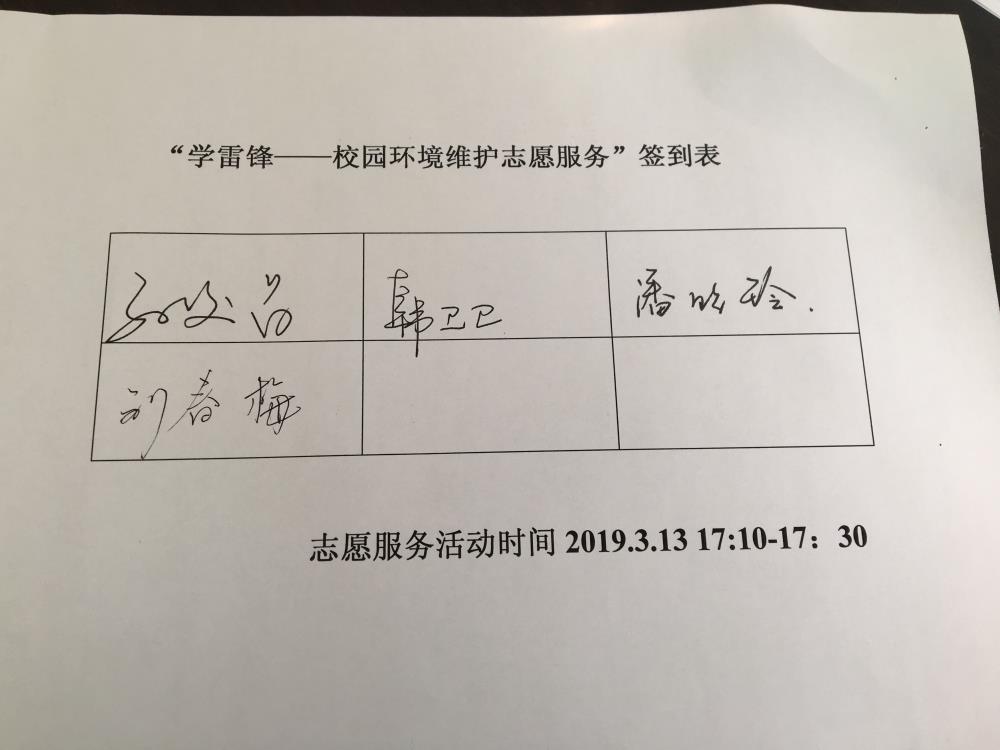 “学雷锋——校园环境维护志愿服务”签到表
韩卫卫
潘 玲.
刘春梅
志愿服务活动时间 2019.3.13 17:10-17：30